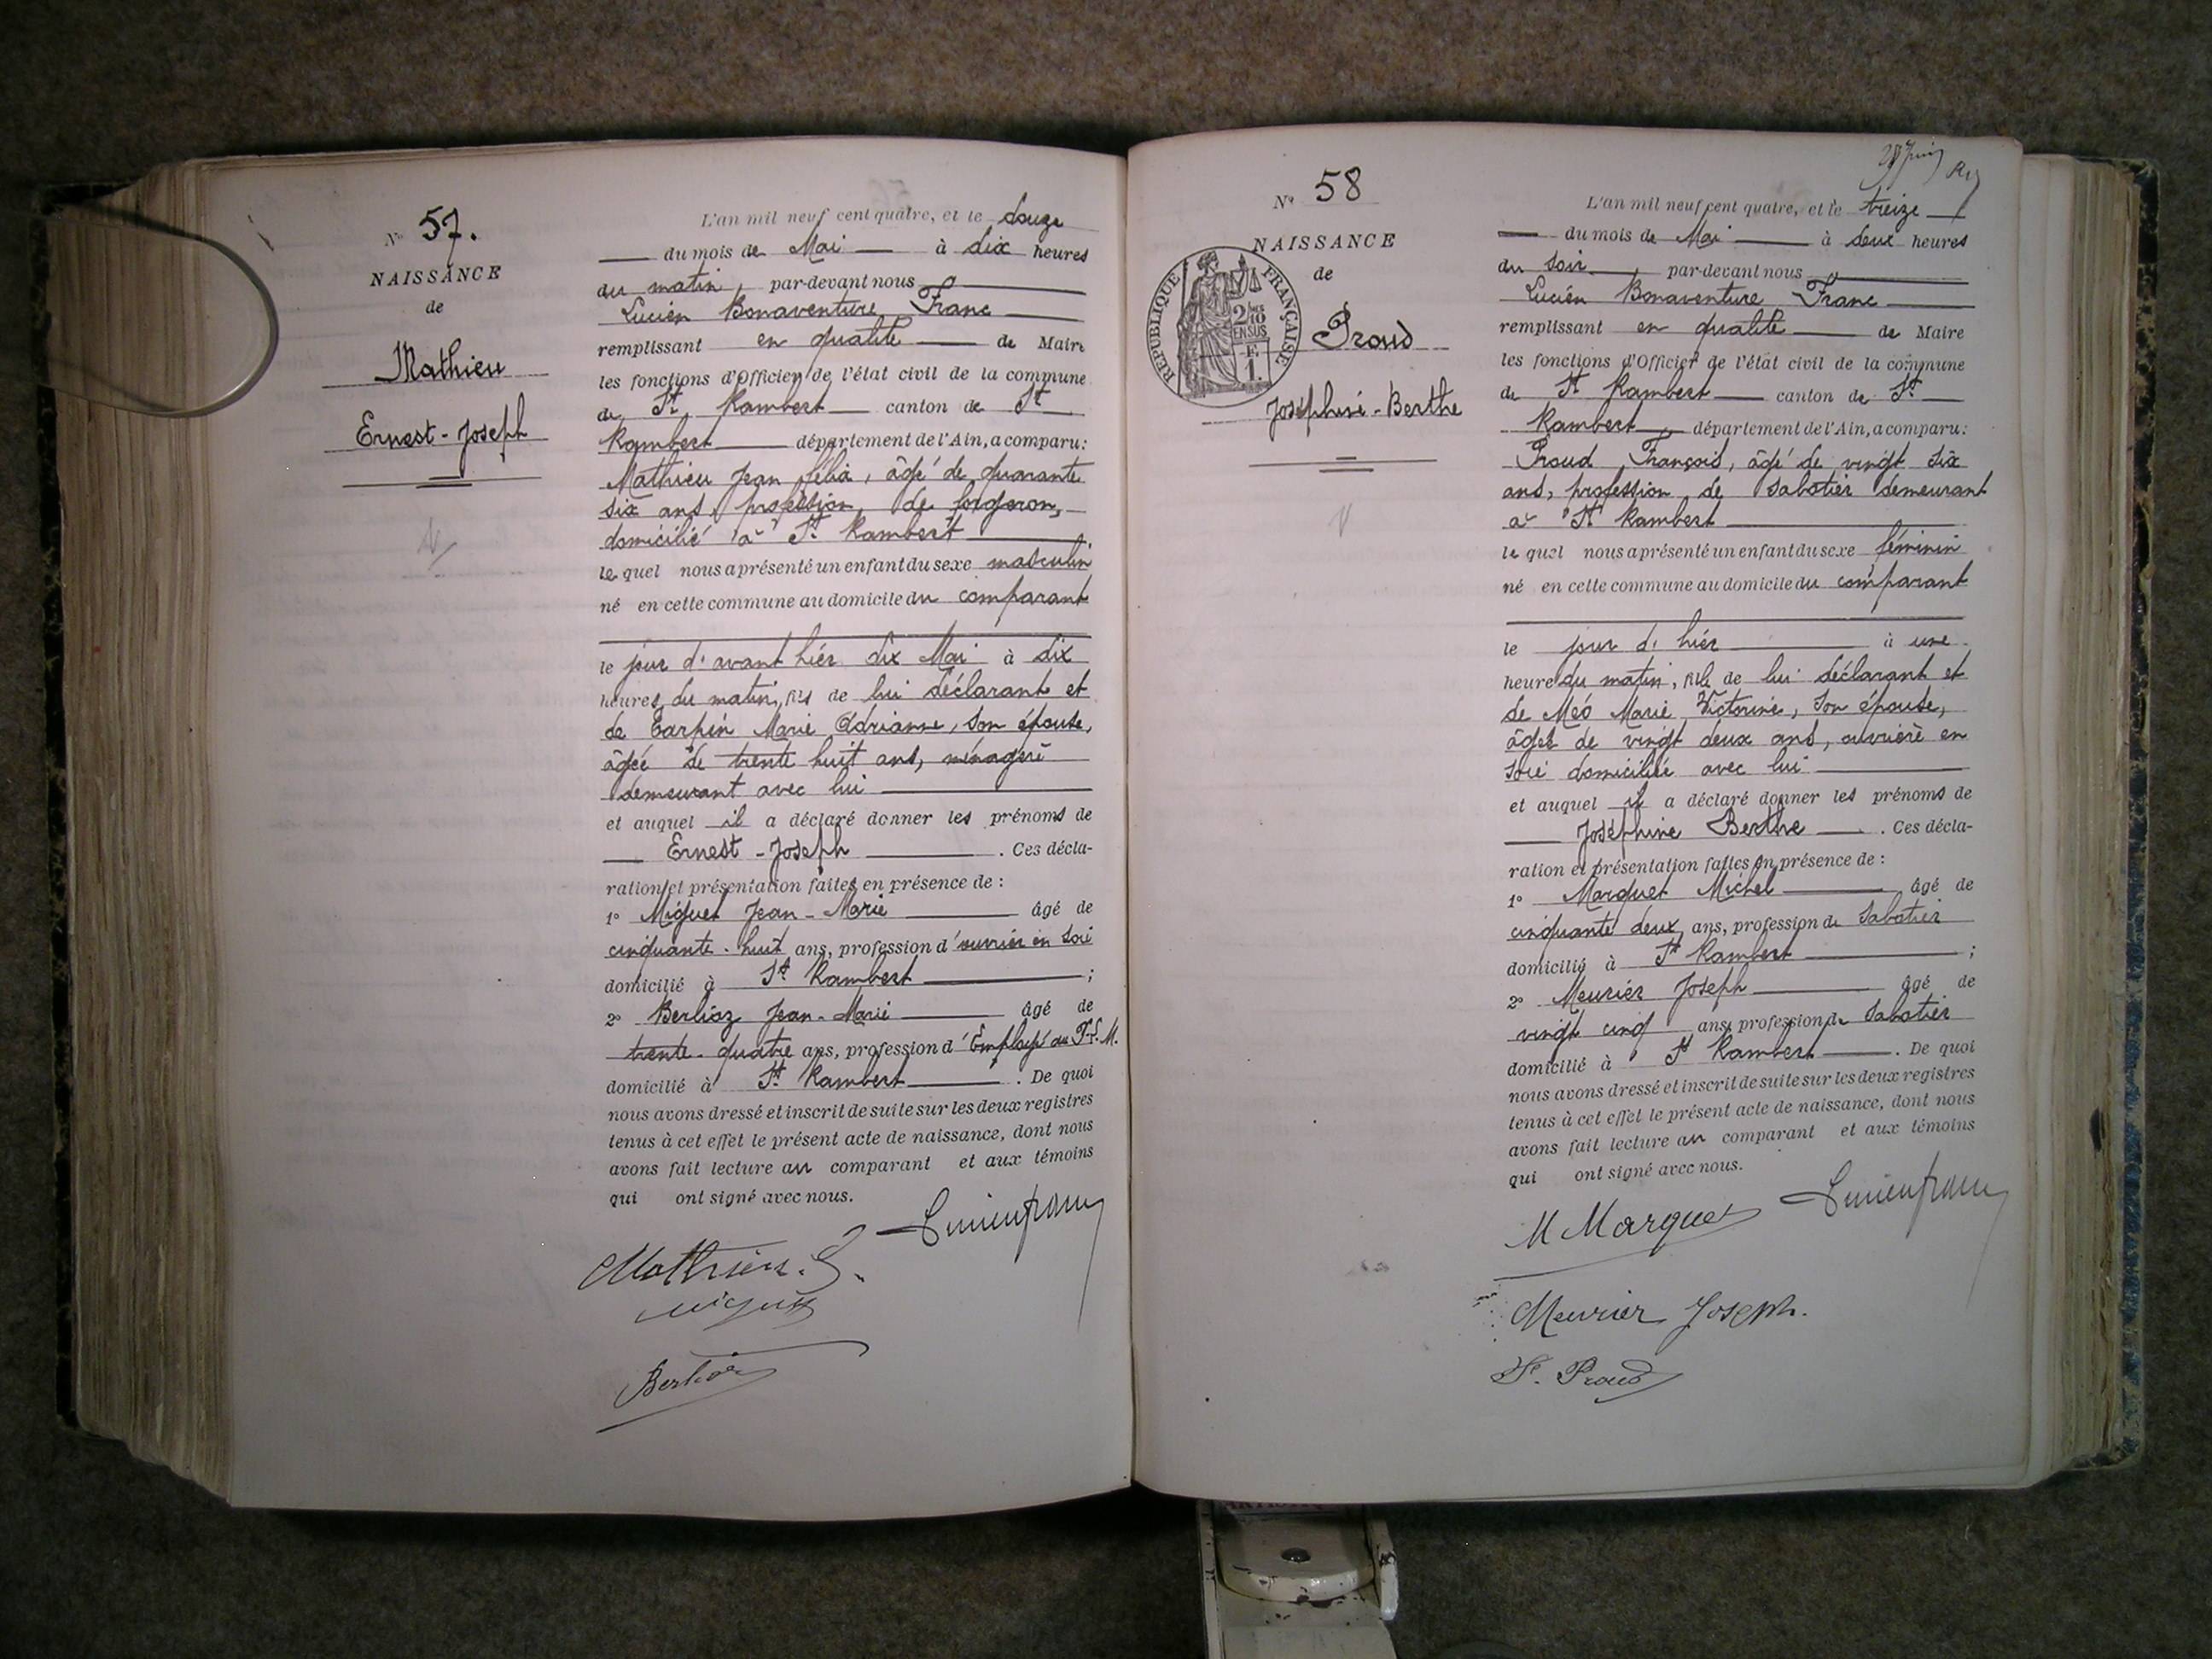 N° 57.
NAISSANCE
de
Mathieu
Ernest-Joseph
L'an mil neuf cent quatre, et le douze
du mois de Mai à dix heures
du matin, par-devant nous
Lucien Bonaventure Franc
remplissant en qualité de Maire
les fonctions d'Officier de l'état civil de la commune
de St Rambert canton de St
Rambert département de l'Ain, a comparu:
Mathieu Jean Félix, âgé de quarante
six ans, profession de forgeron,
domicilié à St Rambert
le quel nous a présenté un enfant du sexe masculin
né en cette commune au domicile du comparant
le jour d'avant hier dix Mai à dix
heures du matin, fils de lui déclarant et
de Tarpin Marie Adrianne, son épouse,
âgée de trente huit ans, ménagère
demeurant avec lui
et auquel il a déclaré donner les prénoms de
Ernest-Joseph . Ces décla-
ration et présentation faites en présence de :
1° Miguet Jean-Marie âgé de
cinquante-huit ans, profession d'ouvrier en soie
domicilié à St Rambert ;
2° Berlioz Jean-Marie âgé de
trente-quatre ans, profession d'Employé au P.L.M.
domicilié à St Rambert . De quoi
nous avons dressé et inscrit de suite sur les deux registres
tenus à cet effet le présent acte de naissance, dont nous
avons fait lecture au comparant et aux témoins
qui ont signé avec nous.
Lucien franc
Mathieu
Miguet
Berlioz
28 Juin
N° 58
NAISSANCE
de
RÉPUBLIQUE FRANÇAISE
2/10 EN SUS
E
1.
Proud
Joséphine-Berthe
L'an mil neuf cent quatre, et le treize
du mois de Mai à deux heures
du soir, par-devant nous
Lucien Bonaventure Franc
remplissant en qualité de Maire
les fonctions d'Officier de l'état civil de la commune
de St Rambert canton de St
Rambert département de l'Ain, a comparu:
Proud François, âgé de vingt six
ans, profession de sabotier demeurant
à St Rambert
le quel nous a présenté un enfant du sexe féminin
né en cette commune au domicile du comparant
le jour d'hier à une
heure du matin, fille de lui déclarant et
de Méo Marie Victorine, son épouse,
âgée de vingt deux ans, ouvrière en
soie domiciliée avec lui
et auquel il a déclaré donner les prénoms de
Joséphine Berthe . Ces décla-
ration et présentation faites en présence de :
1° Marquet Michel âgé de
cinquante deux ans, profession de sabotier
domicilié à St Rambert ;
2° Meurier Joseph âgé de
vingt cinq ans, profession de sabotier
domicilié à St Rambert . De quoi
nous avons dressé et inscrit de suite sur les deux registres
tenus à cet effet le présent acte de naissance, dont nous
avons fait lecture au comparant et aux témoins
qui ont signé avec nous.
M Marquet Lucien franc
Meurier Joseph.
F. Proud